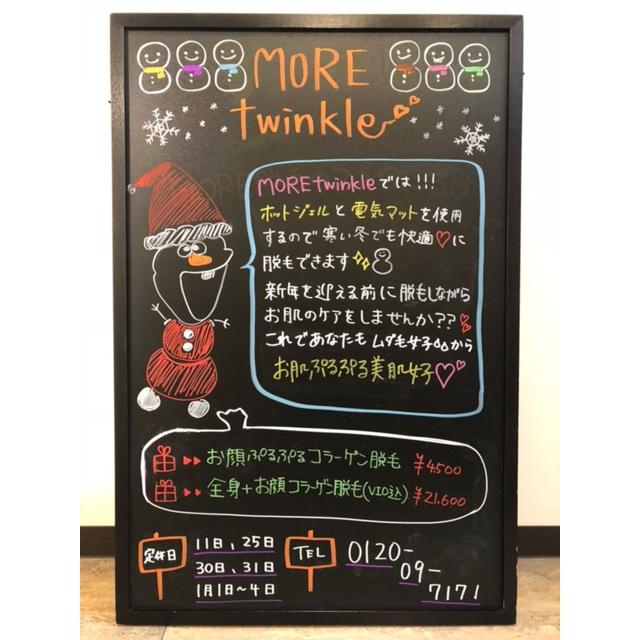 MORE
twinkle
MOREtwinkleでは!!!
ホットジェルと電気マットを使用
するので寒い冬でも快適♡に
脱毛できます
新年を迎える前に脱毛しながら
お肌のケアをしませんか??
これであなたもムダ毛女子から
お肌ぷるぷる美肌女子♡♡
お顔ぷるぷるコラーゲン脱毛 ¥4500
全身+お顔コラーゲン脱毛(VIO込) ¥21.600
定休日
11日、25日
30日、31日
1月1日~4日
TEL
0120-
09-
7171